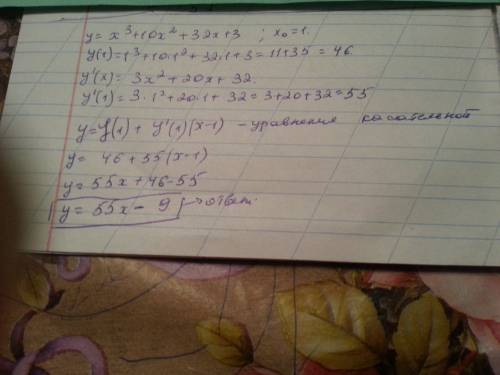 y = x³+10x²+32x+3 ; x₀=1.
y(1)=1³+10·1²+32·1+3=11+35=46.
y'(x)= 3x²+20x+32.
y'(1)=3·1²+20·1+32=3+20+32=55
y=y(1)+ y'(1)(x-1) - уравнение касательной
y= 46+55(x-1)
y=55x+46-55
y=55x-9 → ответ.